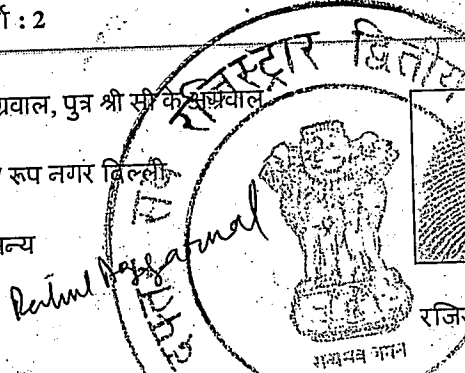 र्ग : 2
ग्रवाल, पुत्र श्री सी के अग्रवाल
रूप नगर दिल्ली
न्य
Rahul Aggarwal
रजिस्ट्रार द्वितीय
रजि
सत्यमेव जयते